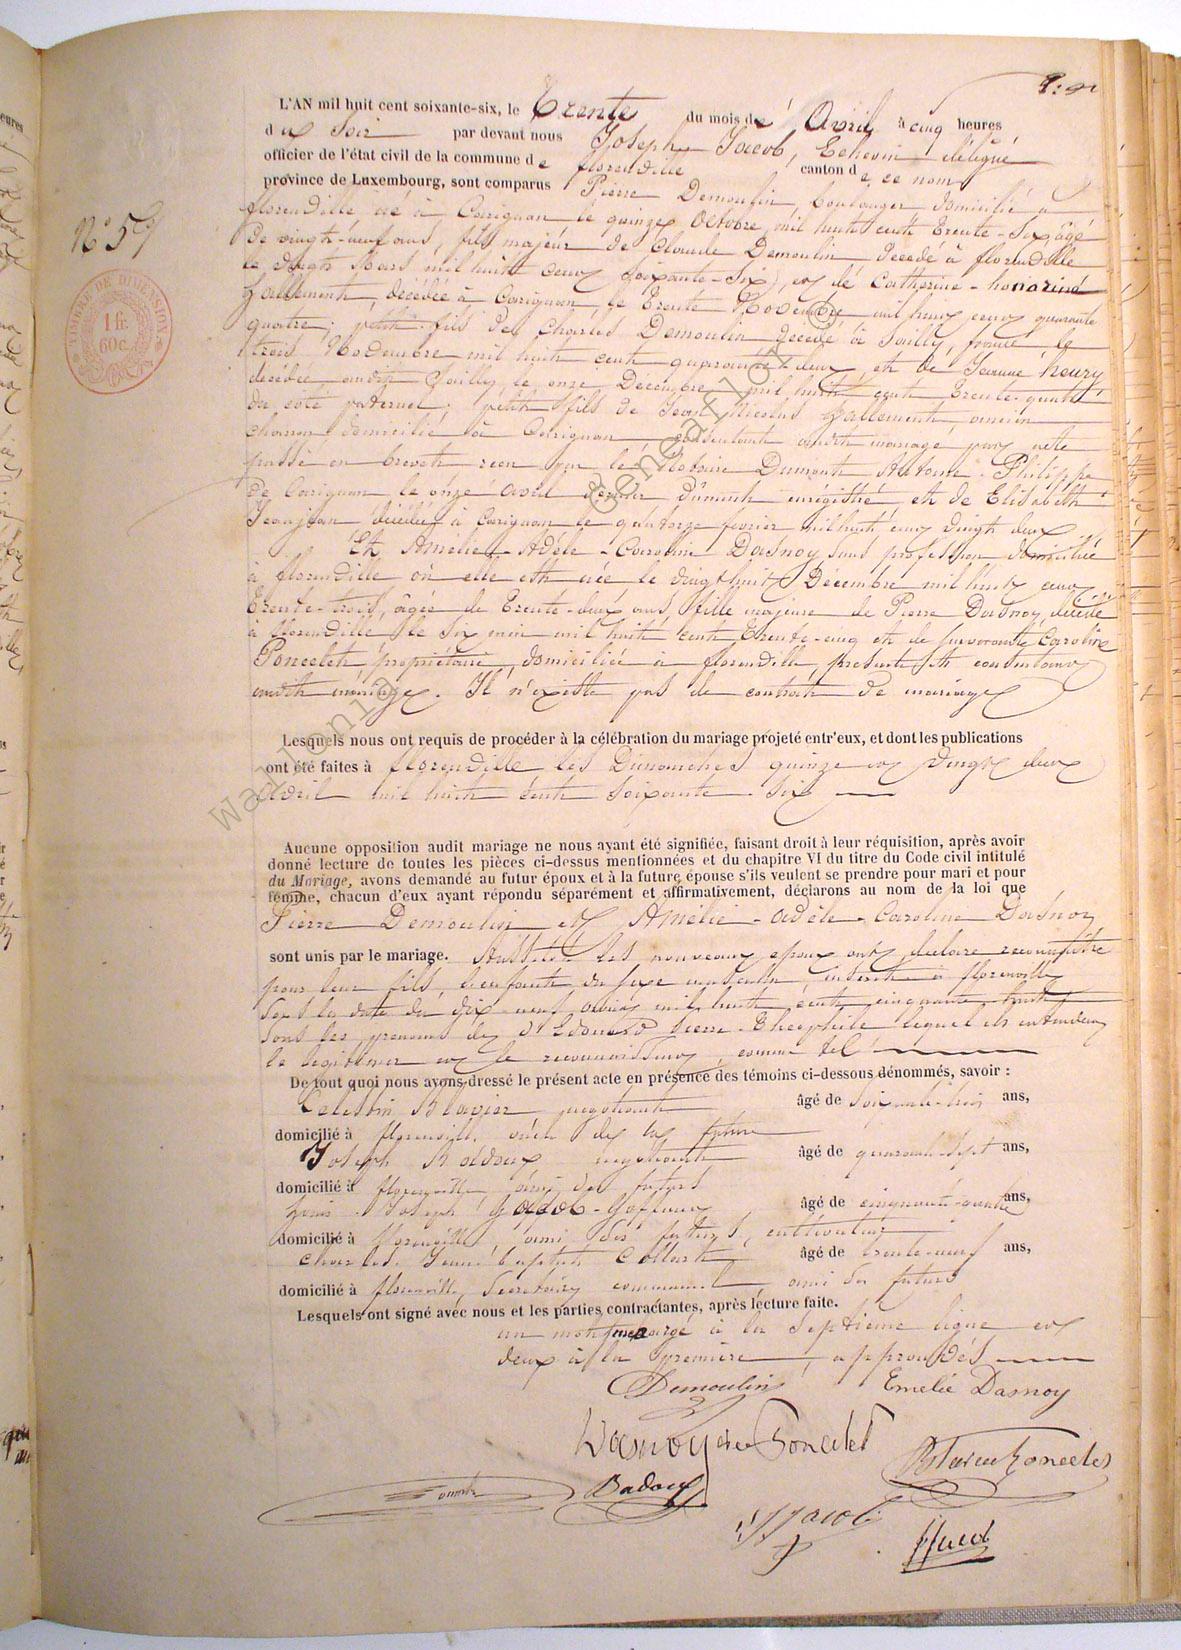 L'AN mil huit cent soixante-six, le Trente du mois de Avril à cinq heures
du Soir par devant nous Joseph Jacob, Echevin délégué
officier de l'état civil de la commune de florenville canton de ce nom
province de Luxembourg, sont comparus Pierre Demoulin, boulanger domicilié à
florenville, né à Carignan le quinze Octobre mil huit cent Trente-Six, âgé
N° 5
de vingt-neuf ans, fils majeur de Claude Demoulin décédé à florenville
le vingt Mars mil huit cent soixante-six, et de Catherine-honorine
hallement, décédée à Carignan, le Trente Novembre mil huit cent quarante
TIMBRE DE DIMENSION
1 fr.
60 c.
quatre; petit-fils de Charles Demoulin décédé à Sailly, le
trois Novembre mil huit cent quarante deux, et de Jeanne henry
décédée audit Sailly le onze Décembre mil huit cent Trente-quatre
du coté paternel; petit fils de Jean Nicolas hallement, ancien
charron domicilié à Carignan, consentant audit mariage par acte
passé en brevet reçu par le Notaire Dumont Antoine-Philippe
de Carignan le onze avril dernier dûment enrégistré, et de Elisabeth
Jeanjean décédée à Carignan le quatorze fevrier mil huit cent vingt deux
Et Amélie-Adèle-Caroline Dasnoy sans profession domiciliée
à florenville où elle est née le vingt huit Décembre mil huit cent
Trente-trois, âgée de Trente-deux ans, fille majeure de Pierre Dasnoy, décédé
à florenville le six mai mil huit cent Trente-cinq et de Caroline
Poncelet propriétaire, domiciliée à florenville, présente et consentant
audit mariage. Il n'existe pas de contrat de mariage
Lesquels nous ont requis de procéder à la célébration du mariage projeté entr'eux, et dont les publications
ont été faites à florenville les Dimanches quinze et vingt deux
Avril mil huit cent soixante-six
Aucune opposition audit mariage ne nous ayant été signifiée, faisant droit à leur réquisition, après avoir
donné lecture de toutes les pièces ci-dessus mentionnées et du chapitre VI du titre du Code civil intitulé
du Mariage, avons demandé au futur époux et à la future épouse s'ils veulent se prendre pour mari et pour
femme, chacun d'eux ayant répondu séparément et affirmativement, déclarons au nom de la loi que
Pierre Demoulin et Amélie-adèle-Caroline Dasnoy
sont unis par le mariage. Aussitôt les nouveaux époux ont déclaré reconnaître
pour leur fils, l'enfant du sexe masculin, inscrit à florenville
sous la date du dix neuf mil huit cent cinquante huit
sous les prénoms de d'Edouard Pierre Théophile lequel ils entendent
le légitimer et le reconnaissent, comme tel
De tout quoi nous avons dressé le présent acte en présence des témoins ci-dessous dénommés, savoir :
Célestin Blavier négociant âgé de soixante-trois ans,
domicilié à florenville, oncle de la future
Joseph Badoux négociant âgé de quarante-sept ans,
domicilié à florenville, ami des futurs
Joseph Jacob âgé de cinquante-quatre ans,
domicilié à florenville, ami des futurs, cultivateur
Charles Jean baptiste Collart âgé de trente-neuf ans,
domicilié à florenville, secrétaire communal, ami des futurs
Lesquels ont signé avec nous et les parties contractantes, après lecture faite.
un mot surchargé à la septième ligne et
deux à la première, approuvés
Demoulin Emelie Dasnoy
Dasnoy née Poncelet
Blavier Poncelet
Badoux
Jacob
Jacob
wallonia geneaflor ©